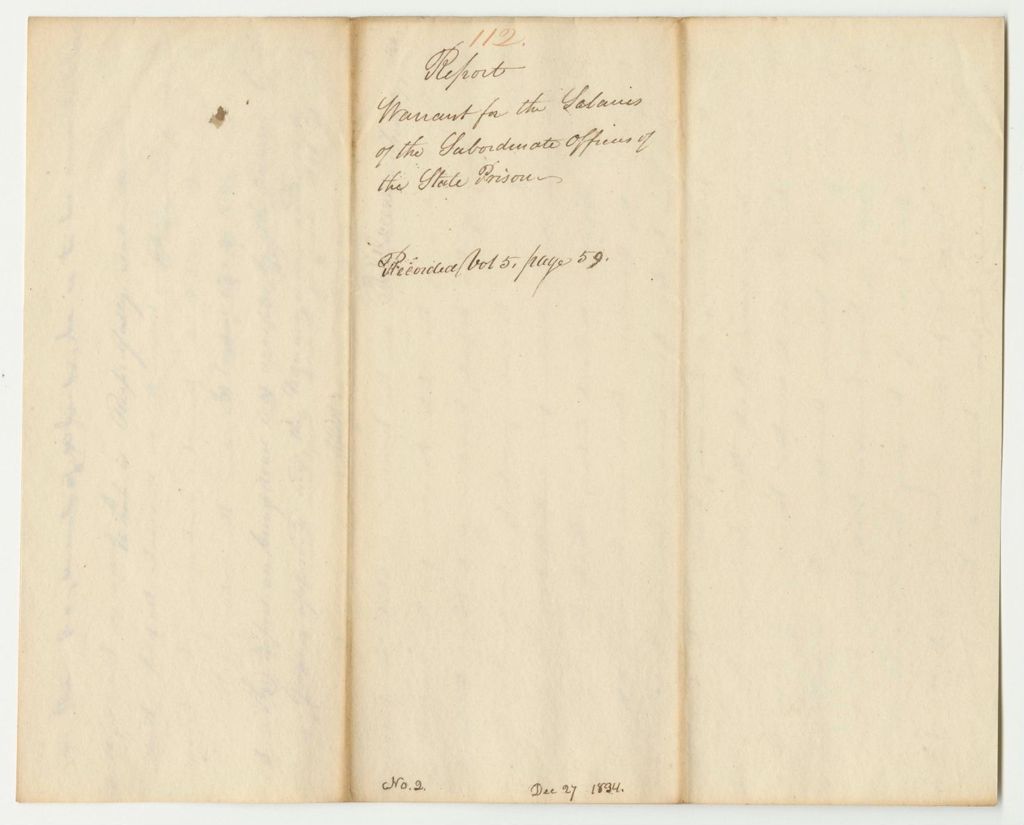 112.
Report
Warrant for the Salaries
of the Subordinate Officers of
the State Prison
Recorded Vol 5, page 59.
No. 2.
Dec 27 1834.